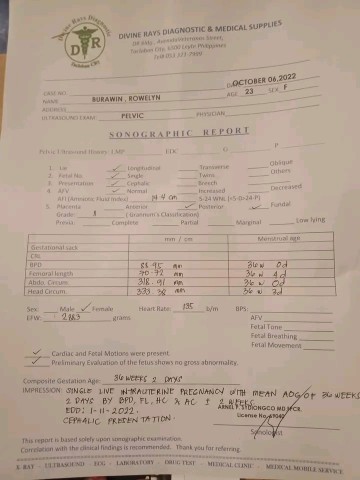 Divine Rays Diagnostic
DR
Tacloban City
DIVINE RAYS DIAGNOSTIC & MEDICAL SUPPLIES
DR Bldg., Avenida Veteranos Street,
Tacloban City, 6500 Leyte Philippines
CASE NO.
OCTOBER 06,2022
NAME BURAWIN, ROWELYN AGE 23 SEX F
ADDRESS
ULTRASOUND EXAM: PELVIC PHYSICIAN
SONOGRAPHIC REPORT
Pelvic Ultrasound History: LMP EDC G P
1. Lie ✓ Longitudinal Transverse Oblique
2. Fetal No ✓ Single Twins Others
3. Presentation ✓ Cephalic Breech
4. AFV ✓ Normal Increased Decreased
AFI (Amniotic Fluid Index) 14.4 cm 5-24 WNL (>5-0>24-P)
5. Placenta Anterior ✓ Posterior ✓ Fundal
Grade: II (Grannum's Classification)
Previa: Complete Partial Marginal Low lying
mm / cm Menstrual age
Gestational sack
CRL
BPD 88.95 mm 36 w 0d
Femoral length 70.72 mm 36 w 4d
Abdo. Circum. 318.91 mm 36 w 0d
Head Circum. 333.38 mm 36 w 3d
Sex: Male ✓ Female Heart Rate: 135 b/m BPS:
EFW: 2883 grams AFV
Fetal Tone
Fetal Breathing
Fetal Movement
✓ Cardiac and Fetal Motions were present.
✓ Preliminary Evaluation of the fetus shows no gross abnormality.
Composite Gestation Age: 36 WEEKS 2 DAYS
IMPRESSION: SINGLE LIVE INTRAUTERINE PREGNANCY WITH MEAN AOG OF 36 WEEKS
2 DAYS BY BPD, FL, HC & AC ± 2 WEEKS
EDD: 1-11-2022.
CEPHALIC PRESENTATION.
License No.
Sonologist
This report is based solely upon sonographic examination.
Correlation with the clinical findings is recommended. Thank you for referring.
X-RAY - ULTRASOUND - ECG - LABORATORY - DRUG TEST - MEDICAL CLINIC - MEDICAL MOBILE SERVICE